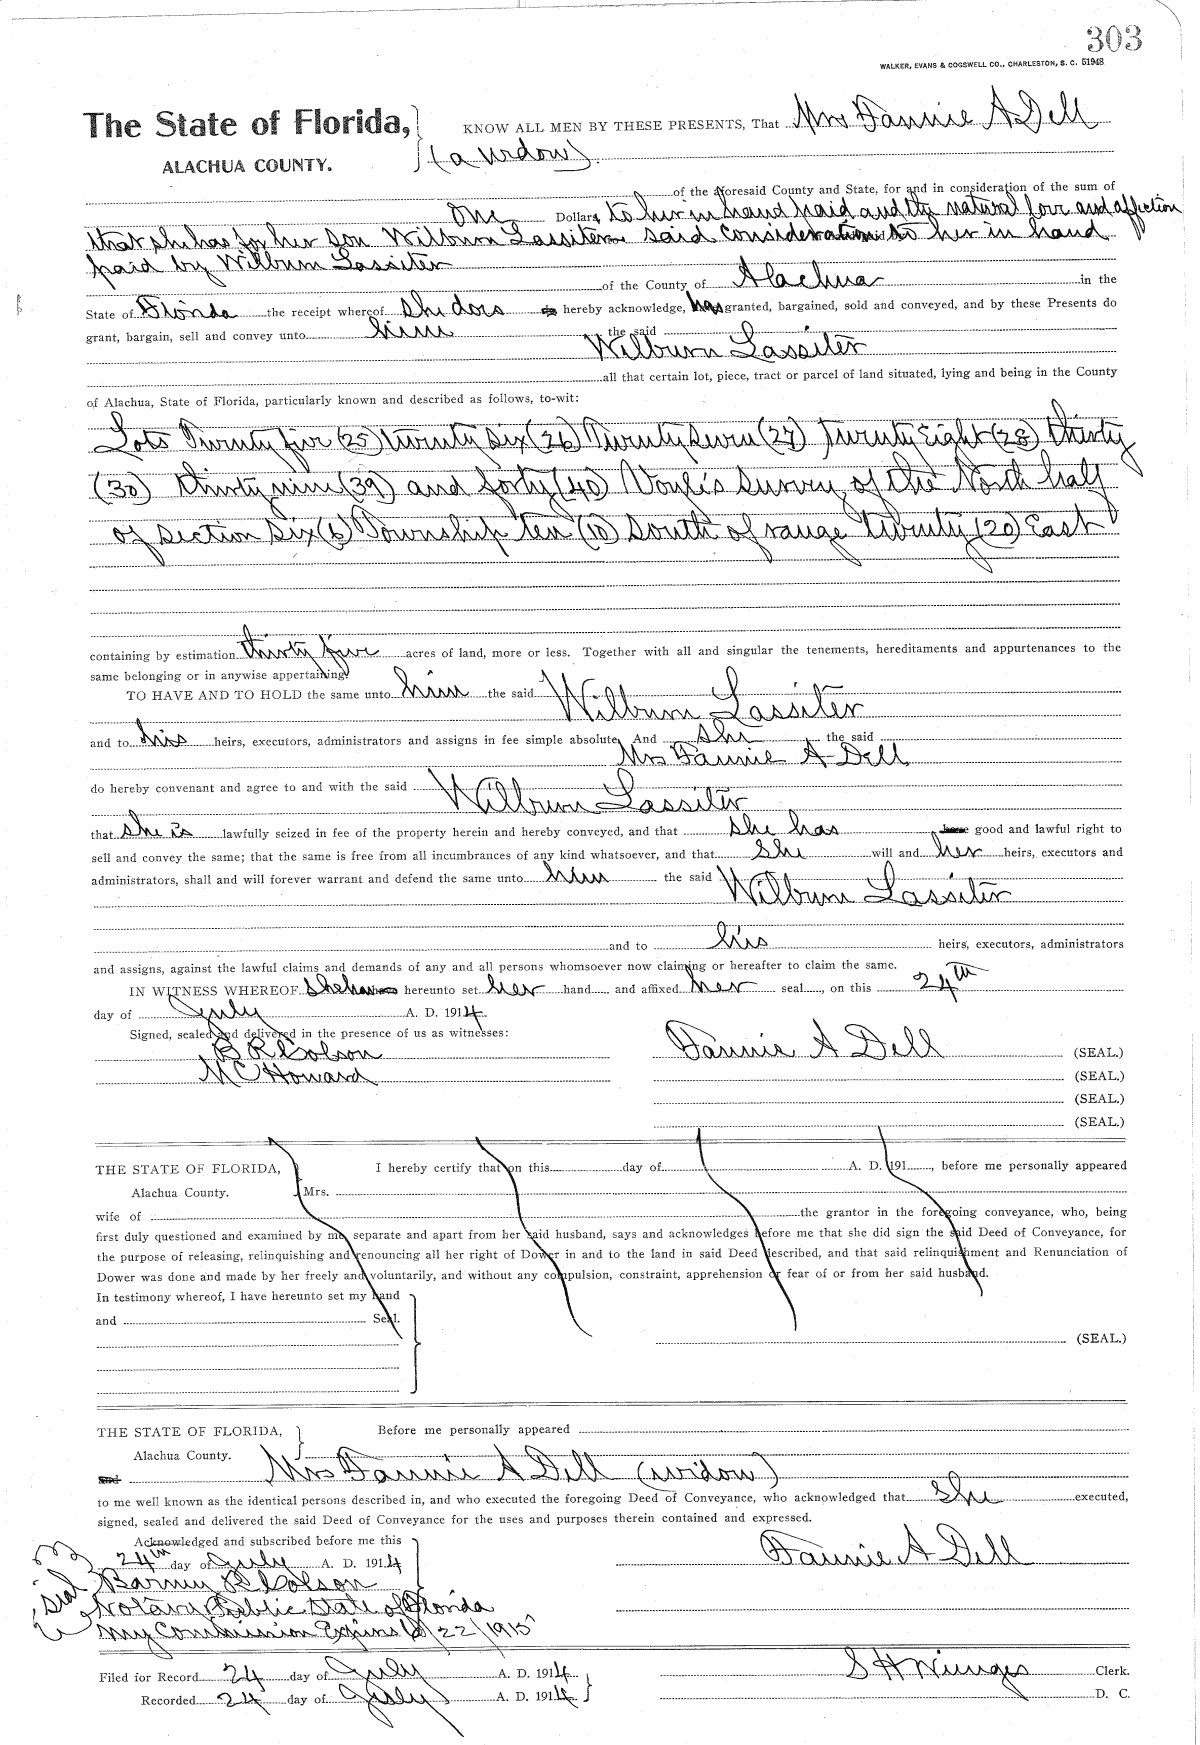 303
WALKER, EVANS & COGSWELL CO., CHARLESTON, S. C. 51948
The State of Florida,
KNOW ALL MEN BY THESE PRESENTS, That Mrs Fannie A Dell
ALACHUA COUNTY. (a widow)
of the aforesaid County and State, for and in consideration of the sum of
One Dollars, to her in hand paid and the natural love and affection
that she has for her son Wilburn Lassiter said consideration to her in hand
paid by Wilburn Lassiter
of the County of Alachua in the
State of Florida the receipt whereof she does hereby acknowledge, has granted, bargained, sold and conveyed, and by these Presents do
grant, bargain, sell and convey unto him the said
Wilburn Lassiter
all that certain lot, piece, tract or parcel of land situated, lying and being in the County
of Alachua, State of Florida, particularly known and described as follows, to-wit:
Lots Twenty five (25) twenty six (26) Twenty Seven (27) Twenty Eight (28) thirty
(30) thirty nine (39) and forty (40) survey of the North half
of section six (6) Township ten (10) South of range twenty (20) East
containing by estimation thirty five acres of land, more or less. Together with all and singular the tenements, hereditaments and appurtenances to the
same belonging or in anywise appertaining.
TO HAVE AND TO HOLD the same unto him the said Wilburn Lassiter
and to his heirs, executors, administrators and assigns in fee simple absolute. And she the said
Mrs Fannie A Dell
do hereby convenant and agree to and with the said Wilburn Lassiter
that she is lawfully seized in fee of the property herein and hereby conveyed, and that she has good and lawful right to
sell and convey the same; that the same is free from all incumbrances of any kind whatsoever, and that she will and her heirs, executors and
administrators, shall and will forever warrant and defend the same unto him the said Wilburn Lassiter
and to his heirs, executors, administrators
and assigns, against the lawful claims and demands of any and all persons whomsoever now claiming or hereafter to claim the same.
IN WITNESS WHEREOF she has hereunto set her hand and affixed her seal, on this 24th
day of July A. D. 1914
Signed, sealed and delivered in the presence of us as witnesses:
B R Colson Fannie A Dell (SEAL.)
M C Howard (SEAL.)
(SEAL.)
(SEAL.)
THE STATE OF FLORIDA, I hereby certify that on this day of A. D. 191 , before me personally appeared
Alachua County. Mrs.
wife of the grantor in the foregoing conveyance, who, being
first duly questioned and examined by me separate and apart from her said husband, says and acknowledges before me that she did sign the said Deed of Conveyance, for
the purpose of releasing, relinquishing and renouncing all her right of Dower in and to the land in said Deed described, and that said relinquishment and Renunciation of
Dower was done and made by her freely and voluntarily, and without any compulsion, constraint, apprehension or fear of or from her said husband.
In testimony whereof, I have hereunto set my hand
and Seal.
(SEAL.)
THE STATE OF FLORIDA, Before me personally appeared
Alachua County.
and Mrs Fannie A Dell (widow)
to me well known as the identical persons described in, and who executed the foregoing Deed of Conveyance, who acknowledged that she executed,
signed, sealed and delivered the said Deed of Conveyance for the uses and purposes therein contained and expressed.
Acknowledged and subscribed before me this
24th day of July A. D. 1914 Fannie A Dell
Seal Barney R Colson
Notary Public State of Florida
My Commission Expires /22/1915
Filed for Record 24 day of July A. D. 1914 S H Wienges Clerk.
Recorded 24 day of July A. D. 1914 D. C.